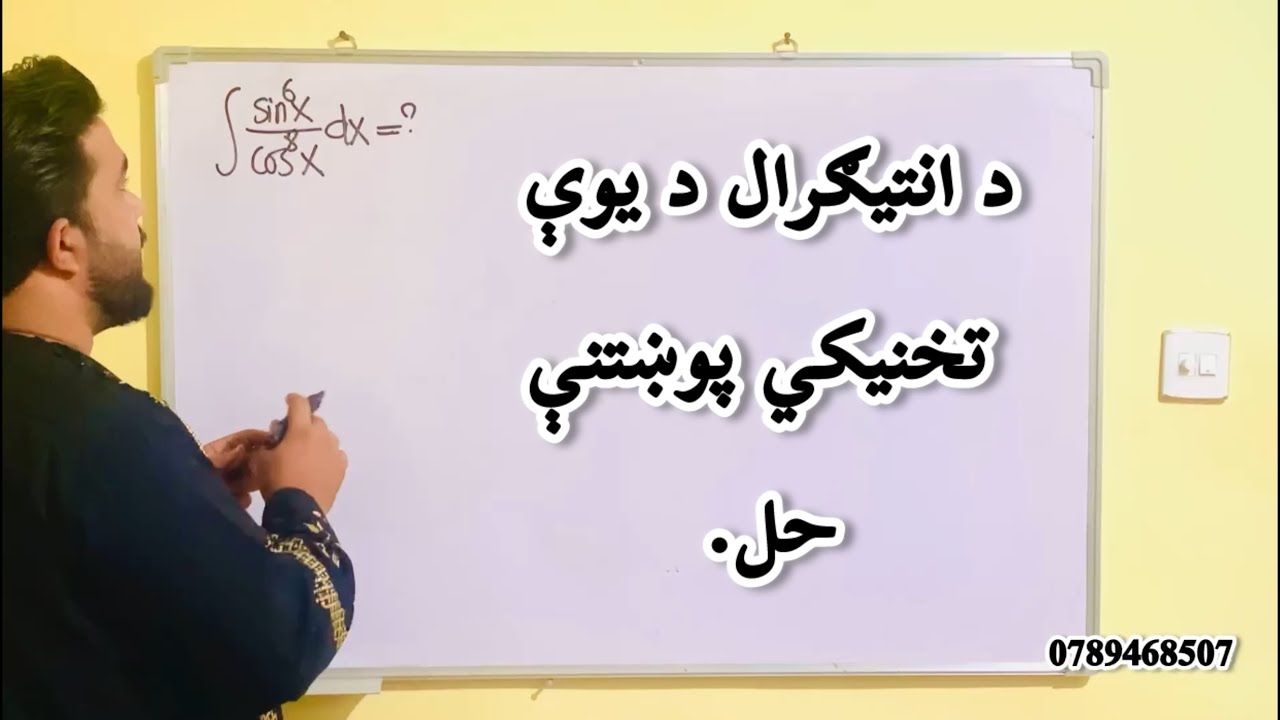 ∫ sin⁶x / cos⁸x dx = ?
د انتیګرال د یوې
تخنیکي پوښتنې
حل.
0789468507